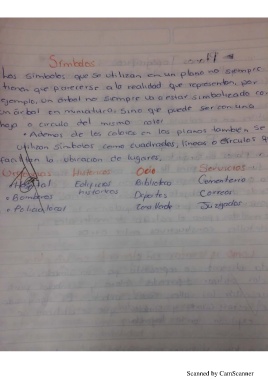 Símbolos
Los símbolos que se utilizan en un plano no siempre
tienen que parecerse a la realidad que representan, por
ejemplo, un árbol no siempre va a estar simbolizado co
un árbol en miniatura, sino que puede ser con una
hoja o circulo del mismo color.
• Ademas de los colores en los planos tambien se
utilizan símbolos como cuadrados, líneas o circulos q
la ubicación de lugares.
Historicos Ocio Servicios
Edificios Bibliotecas Cementerio
historicos
• Bomberos Deportes Correos
Juzgados
Scanned by CamScanner